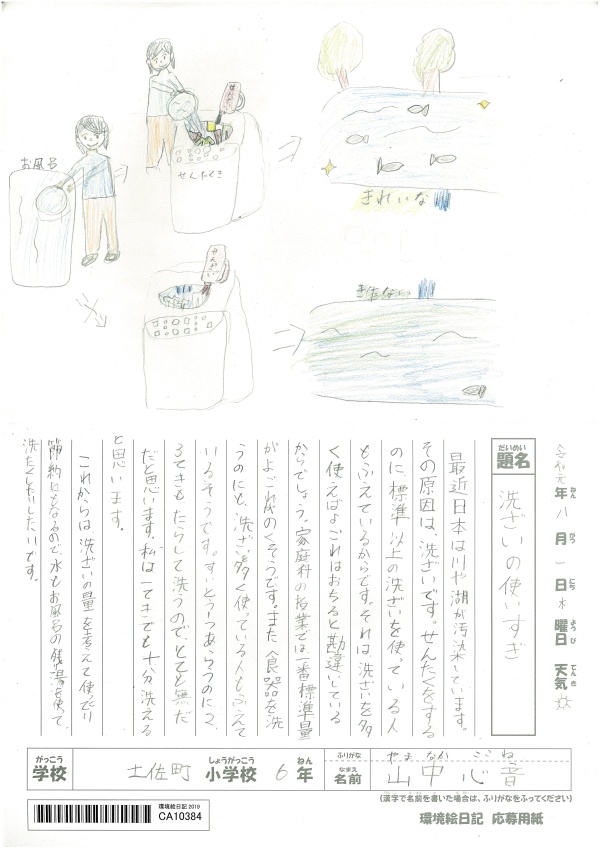 お風呂
せんたくき
せんざい
きれいな川
せんざい
きたない川
令和元年八月一日木曜日天気☀
ねん がつ にち ようび てんき
だいめい
題名
洗ざいの使いすぎ
最近日本は川や湖が汚染しています。
その原因は、洗ざいです。せんたくをする
のに標準以上の洗ざいを使っている人
もふえているからです。それは洗ざいを多
く使えばよごれはおちると勘違いしている
からでしょう。家庭科の授業では一番標準量
がよごれがのくそうです。また食器を洗
うのにも、洗ざいを多く使っている人もふえて
いるそうです。すいとう一つあらうのに2、
3てきもたらして洗うので、とても無だ
だと思います。私は一てきでも十分洗える
と思います。
これからは洗ざいの量を考えて使ったり
節約にもなるので、水もお風呂の残湯を使って、
洗たくしたりしたいです。
がっこう
学校
土佐町
しょうがっこう
小学校
6
ねん
年
ふりがな
やまなか ここね
なまえ
名前
山中心音
(漢字で名前を書いた場合は、ふりがなをふってください)
環境絵日記 2019
CA10384
環境絵日記 応募用紙